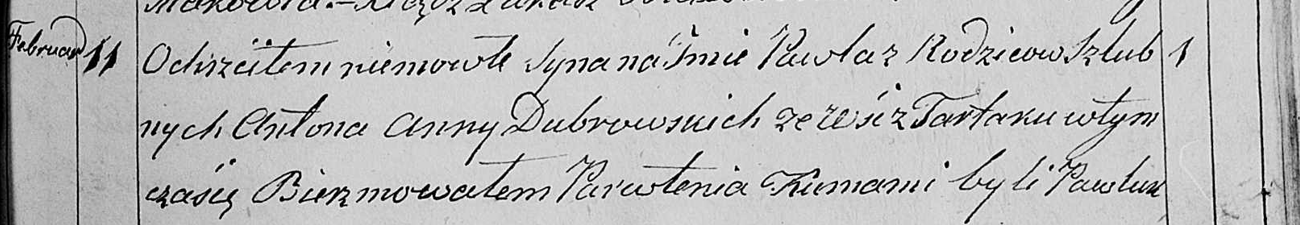 Februar 11 Ochrzciłem niemowle Syna na Jmie Pawła z Rodzicow Szlub 1
nych Antona Anny Dubrowskich ze Wsi z Tartaku wtym
czasię Bierzmowałem Parwłenia Kumami byli Pawluk